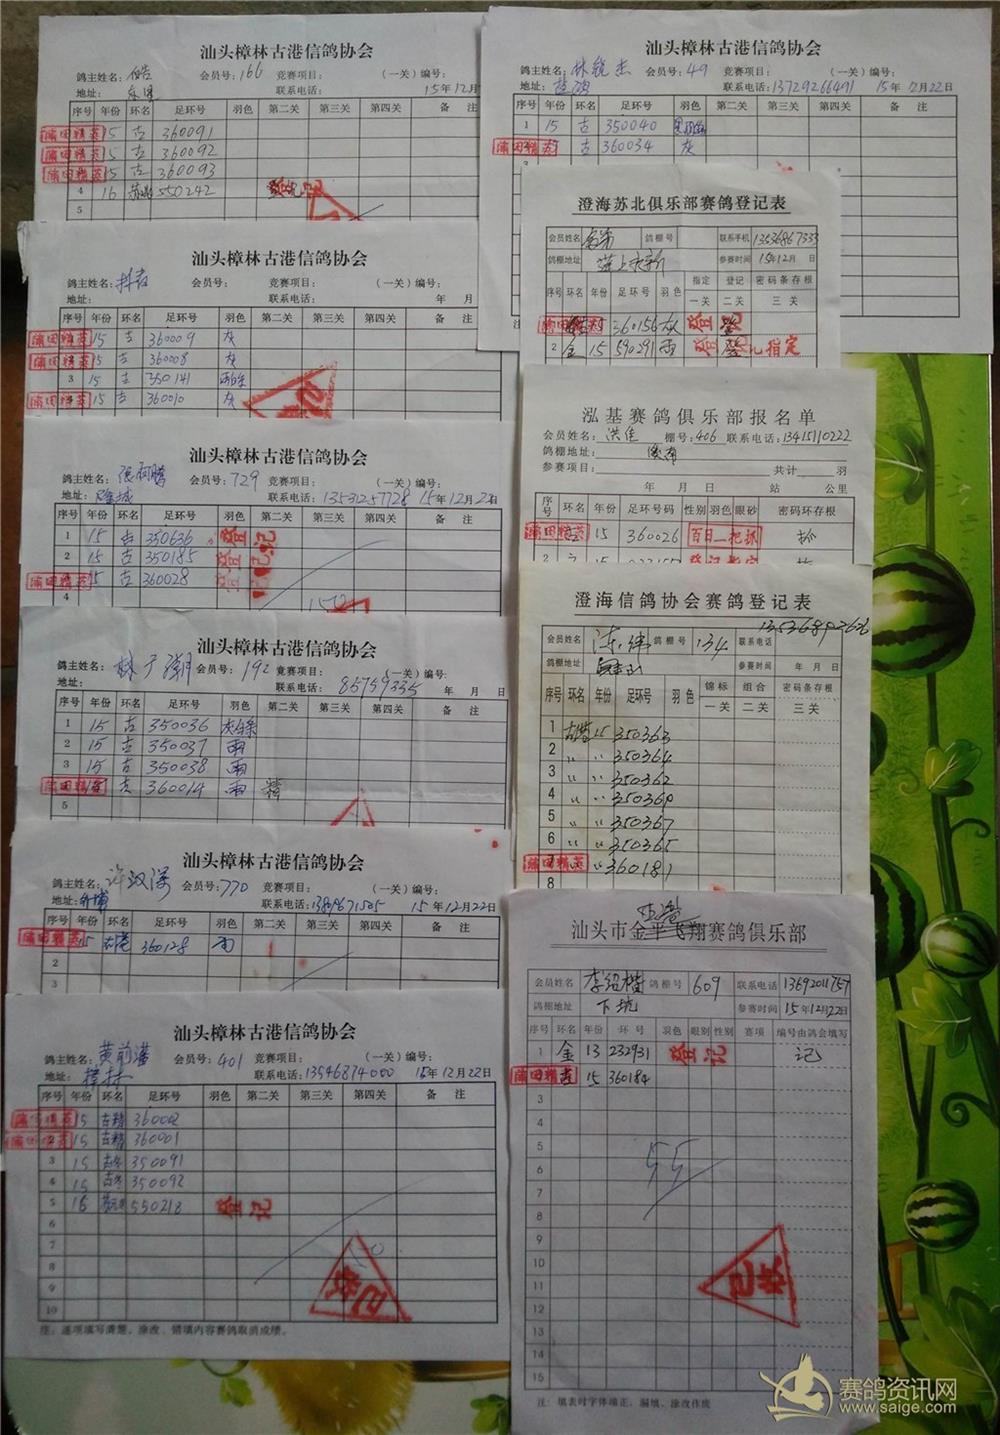 汕头樟林古港信鸽协会
鸽主姓名: 会员号: 166 竞赛项目: (一关)编号:
地址: 联系电话: 15年12月
序号 年份 环名 足环号 羽色 第二关 第三关 第四关 备 注
莆田精英 15 古 360091
莆田精英 15 古 360092
莆田精英 15 古 360093
4 16 550242 登记
5
汕头樟林古港信鸽协会
鸽主姓名: 会员号: 竞赛项目: (一关)编号:
地址: 联系电话: 年 月
序号 年份 环名 足环号 羽色 第二关 第三关 第四关 备 注
莆田精英 15 古 360009 灰
莆田精英 15 古 360008 灰
3 15 古 350141
莆田精英 15 古 360010 灰
汕头樟林古港信鸽协会
鸽主姓名: 会员号: 729 竞赛项目: (一关)编号:
地址: 隆城 联系电话: 13531257728 15年12月22日
序号 年份 环名 足环号 羽色 第二关 第三关 第四关 备 注
1 15 古 350636 登记
2 15 古 350185 登记
莆田精英 15 古 360028
4
汕头樟林古港信鸽协会
鸽主姓名: 林广潮 会员号: 192 竞赛项目: (一关)编号:
地址: 联系电话: 85759335 年 月 日
序号 年份 环名 足环号 羽色 第二关 第三关 第四关 备 注
1 15 古 350036 灰白条
2 15 古 350037 雨
3 15 古 350038 雨
莆田精英 15 古 360014 雨 精
5
汕头樟林古港信鸽协会
鸽主姓名: 会员号: 770 竞赛项目: (一关)编号:
地址: 联系电话: 15年12月22日
序号 年份 环名 足环号 羽色 第二关 第三关 第四关 备 注
莆田精英 15 古港 360128 雨
2
3
汕头樟林古港信鸽协会
鸽主姓名: 黄前潘 会员号: 401 竞赛项目: (一关)编号:
地址: 樟林 联系电话: 13546874000 15年12月22日
序号 年份 环名 足环号 羽色 第二关 第三关 第四关 备 注
莆田精英 15 古精 360002
莆田精英 2 15 古精 360001
3 15 350091
4 15 350092
5 16 550218 登记
6
7
8
9
10
注: 逐项填写清楚。涂改、错填内容赛鸽取消成绩。
汕头樟林古港信鸽协会
鸽主姓名: 林锐杰 会员号: 49 竞赛项目: (一关)编号:
地址: 联系电话: 13729266491 15年12月22日
序号 年份 环名 足环号 羽色 第二关 第三关 第四关 备 注
1 15 古 350040
莆田精英 古 360034 灰
澄海苏北俱乐部赛鸽登记表
会员姓名 鸽棚号 联系手机 13536867333
鸽棚地址 参赛时间 15年12月 日
序号 环名 年份 足环号 羽色 指定 登记 密码条存根
一关 二关 三关
莆田精英 15 360156 灰 登记
2 金 15 590291 雨 登 登记指定
泓基赛鸽俱乐部报名单
会员姓名: 洪佳 棚号: 406 联系电话: 13415110222
鸽棚地址:
参赛项目: 共计 羽
年 月 日 站 公里
序号 环名 年份 足环号码 性别 羽色 眼砂 密码环存根
莆田精英 15 360026 百日一把抓 抓
登记指定
澄海信鸽协会赛鸽登记表
会员姓名 鸽棚号 134 联系电话
鸽棚地址 参赛时间 年 月 日
序号 环名 年份 足环号 羽色 锦标 组合 密码条存根
一关 二关 三关
1 15 350363
2 〃 〃 350364
3 〃 〃 350362
4 〃 〃 350369
5 〃 〃 350367
6 〃 〃 350365
莆田精英 7 〃 360181
8
汕头市金平飞翔赛鸽俱乐部
会员姓名 李绍楷 鸽棚号 609 联系电话 13692011757
鸽棚地址 下坑 参赛时间 15年12月22日
序号 环名 年份 环号 羽色 眼别 性别 赛项 编号由鸽会填写
1 金 13 232931 登记 记
莆田精英 15 360184
3
4
5
6
7
8
9
10
11
12
13
14
15
注: 填表时字体端正, 漏填、涂改作废
赛鸽资讯网
www.saige.com